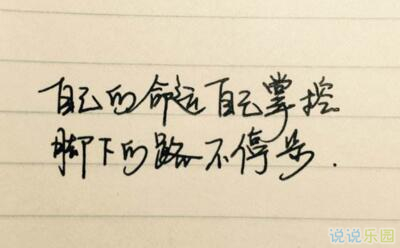 自己的命运自己掌控
脚下的路不停步.
说说乐园